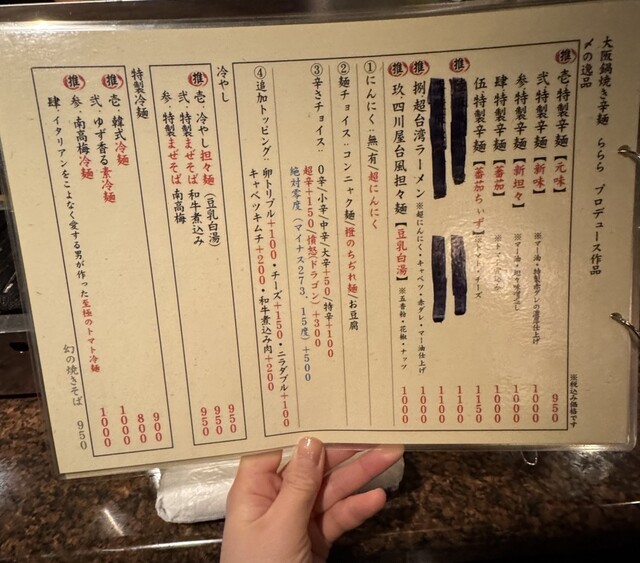 大阪鍋焼き辛麺 ららら プロデュース作品
〆の逸品
※税込み価格です
推 壱 特製辛麺【元味】 950
弐 特製辛麺【新味】 ※マー油・特製赤ダレの濃厚仕上げ 1000
参 特製辛麺【新坦々】 1000
肆 特製辛麺【蕃茄】 1000
伍 特製辛麺【蕃茄ちぃず】 ※トマト・チーズ 1150
推 1100
1100
推 捌 超台湾ラーメン ※超にんにく・キャベツ・赤ダレ・マー油仕上げ 1000
推 玖 四川屋台風担々麺【豆乳白湯】 ※五香粉・花椒・ナッツ 1000
①にんにく：無/有/超にんにく
②麺チョイス：コンニャク麺/橙のちぢれ麺/お豆腐
③辛さチョイス：0辛/小辛/中辛/大辛+50/特辛+100
超辛+150/憤怒(ドラゴン)+300
絶対零度(マイナス273.15度)+500
④追加トッピング：卵トリプル+100・チーズ+150・ニラダブル+100
キャベツキムチ+200・和牛煮込み肉+200
冷やし
推 壱.冷やし担々麺(豆乳白湯) 950
弐.特製まぜそば 和牛煮込み 950
参.特製まぜそば 南高梅 950
特製冷麺
推 壱.韓式冷麺 900
弐.ゆず香る素冷麺 800
推 参.南高梅冷麺 1000
肆.イタリアンをこよなく愛する男が作った至極のトマト冷麺 1000
幻の焼きそば 950